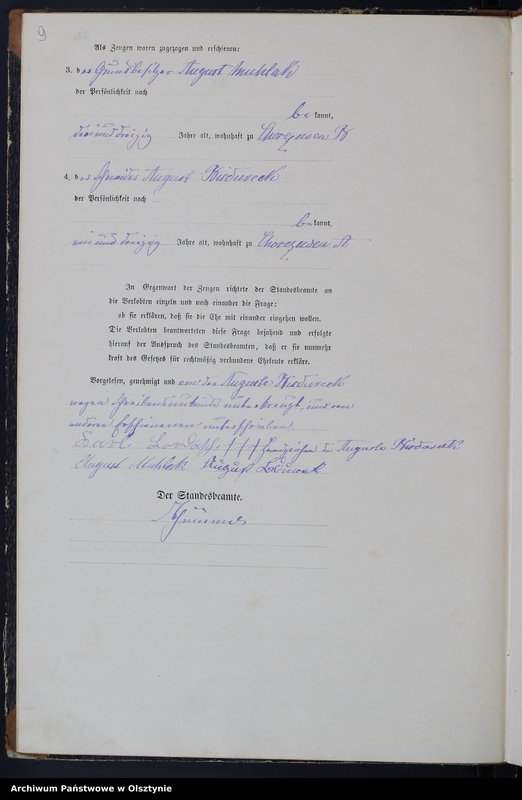 9
Als Zeugen waren zugezogen und erschienen:
3. der Grundbesitzer August Muhlak
der Persönlichkeit nach
be kannt,
drei und dreißig Jahre alt, wohnhaft zu
4. der August
der Persönlichkeit nach
be kannt,
und dreißig Jahre alt, wohnhaft zu
In Gegenwart der Zeugen richtete der Standesbeamte an
die Verlobten einzeln und nach einander die Frage:
ob sie erklären, daß sie die Ehe mit einander eingehen wollen.
Die Verlobten beantworteten diese Frage bejahend und erfolgte
hierauf der Ausspruch des Standesbeamten, daß er sie nunmehr
kraft des Gesetzes für rechtmäßig verbundene Eheleute erkläre.
Vorgelesen, genehmigt und von der Auguste
wegen Schreibensunkunde unterkreuzt, und von
anderen Erschienenen unterschrieben
Karl +++ Handzeichen der Auguste
August Muhlak August
Der Standesbeamte.
Archiwum Państwowe w Olsztynie